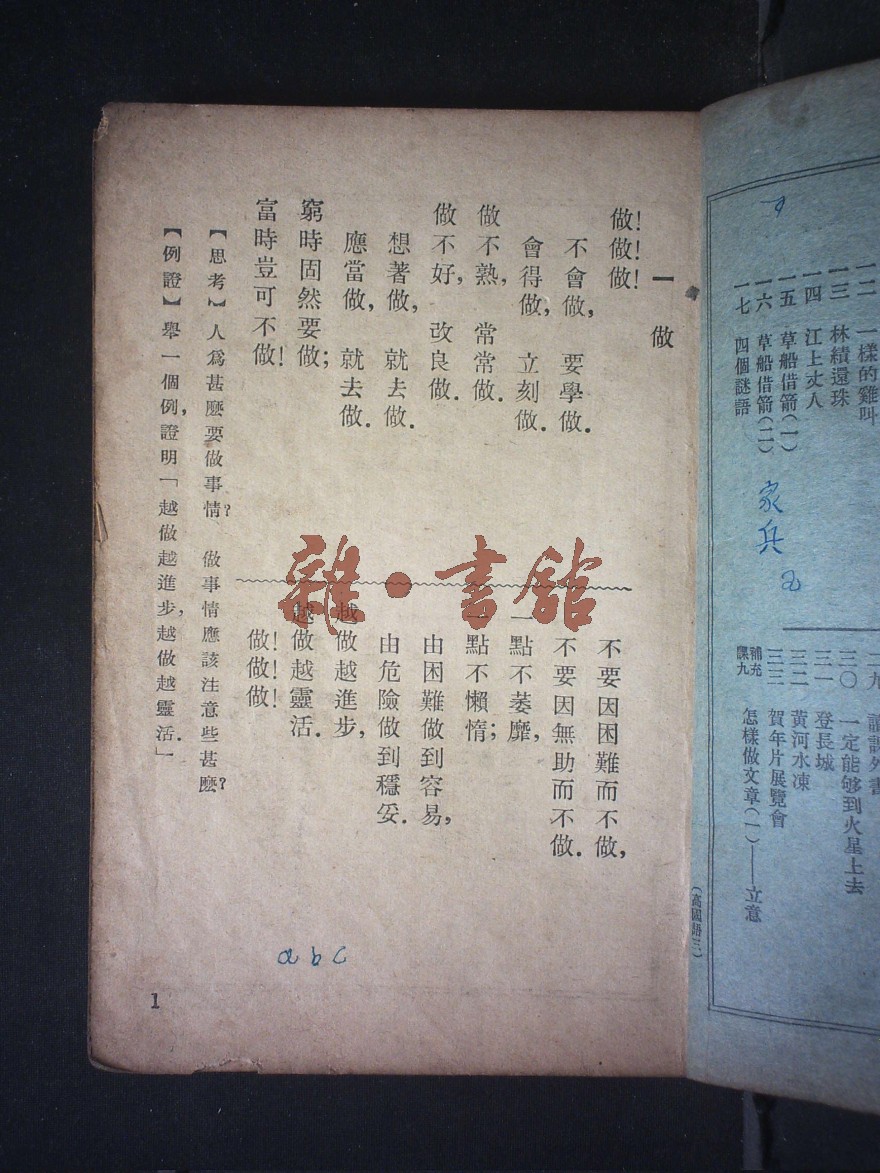 一二 一樣的雞叫
一三 林績還珠
一四 江上丈人
一五 草船借箭(一)
一六 草船借箭(二)
一七 四個謎語
家兵
三〇 一定能够到火星上去
三一 登長城
三二 黃河水凍
三三 賀年片展覽會
補充課九 怎樣做文章(一)——立意
(高國語三)
一 做
做!做!做!
不會做,要學做.
會得做,立刻做.
做不熟,常常做.
做不好,改良做.
想著做,就去做.
應當做,就去做.
窮時固然要做;
富時豈可不做!
不要因困難而不做,
不要因無助而不做.
一點不萎靡,
一點不懶惰;
由困難做到容易,
由危險做到穩妥.
越做越進步,
越做越靈活.
做!做!做!
【思考】人爲甚麽要做事情?做事情應該注意些甚麽?
【例證】舉一個例,證明「越做越進步,越做越靈活.」
abc
1
雜·書館